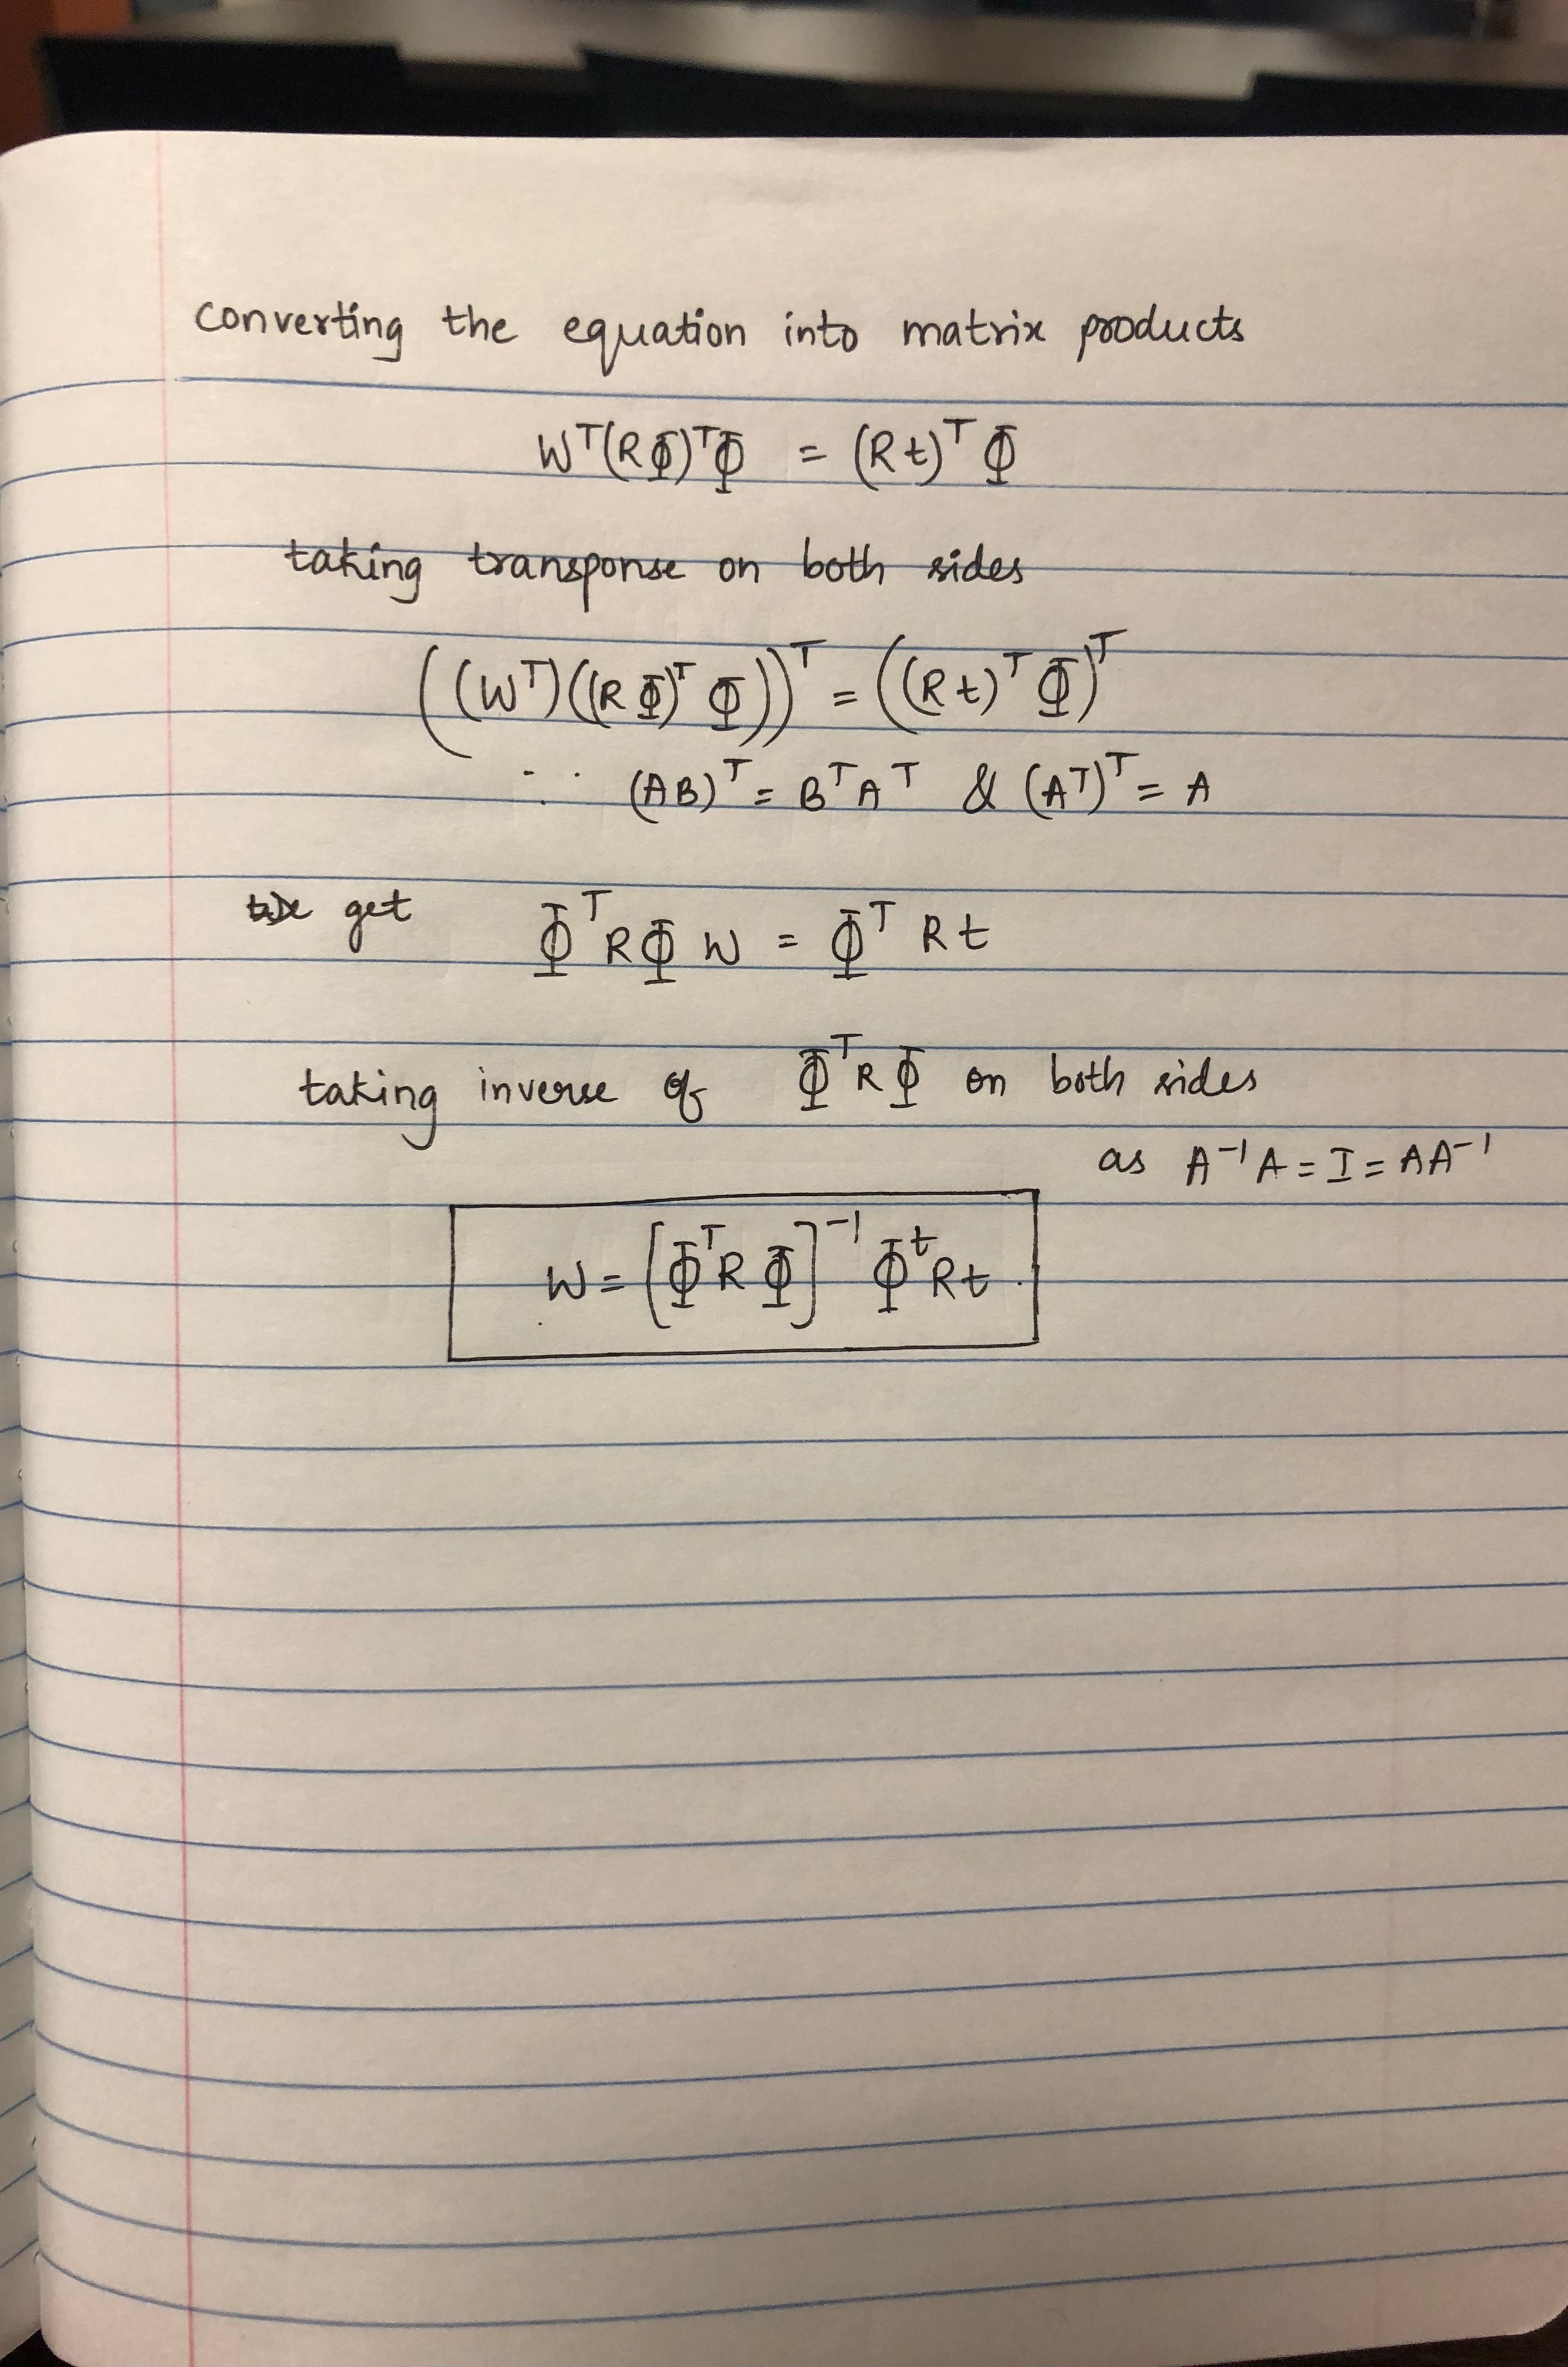 converting the equation into matrix products
Wᵀ(RΦ)ᵀΦ = (Rt)ᵀ Φ
taking transponse on both sides
((Wᵀ)((RΦ)ᵀ Φ))ᵀ = ((Rt)ᵀ Φ)ᵀ
∵ (AB)ᵀ = BᵀAᵀ & (Aᵀ)ᵀ = A
We get Φᵀ R Φ W = Φᵀ R t
taking inverse of ΦᵀRΦ on both sides
as A⁻¹A = I = AA⁻¹
W = [ΦᵀRΦ]⁻¹ Φᵗ R t .